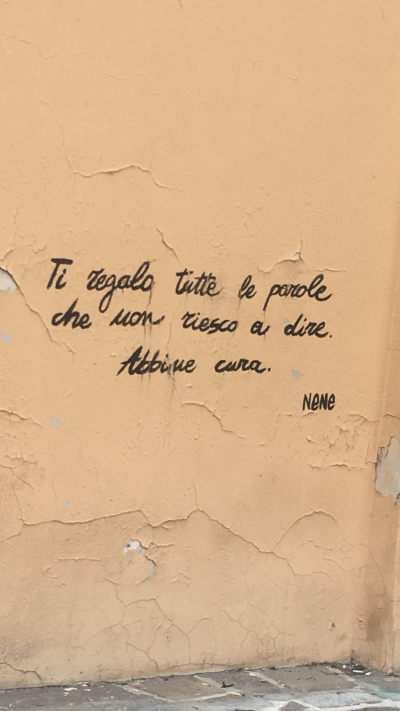 Ti regalo tutte le parole
che non riesco a dire.
Abbine cura.
NeNe